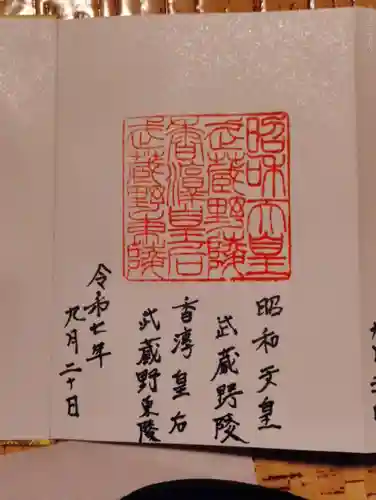 昭和天皇
武蔵野陵
香淳皇后
武蔵野東陵
昭和天皇
武蔵野陵
香淳皇后
武蔵野東陵
令和七年
九月二十日